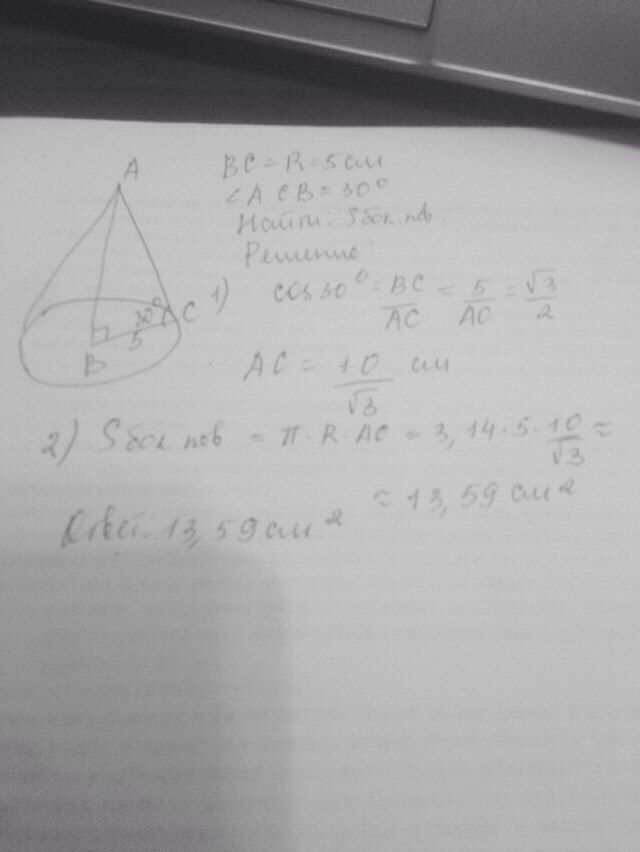 A
BC = R = 5 см
∠ACB = 30°
Найти: Sбок.пов.
Решение:
30° C
5
B
1) cos 30° = BC/AC = 5/AC = √3/2
AC = 10/√3 см
2) Sбок пов = π · R · AC = 3,14 · 5 · 10/√3 ≈
≈ 13,59 см²
Ответ. 13,59 см²